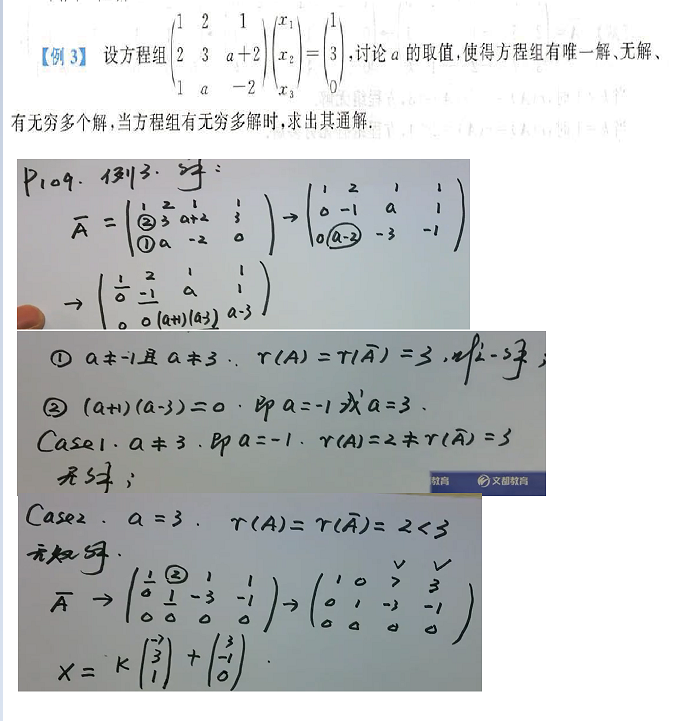 【例 3】 设方程组 (1 2 1; 2 3 a+2; 1 a -2)(x₁; x₂; x₃) = (1; 3; 0),讨论 a 的取值,使得方程组有唯一解、无解、
有无穷多个解,当方程组有无穷多解时,求出其通解.
P109. 例3. 解:
Ā = (1 2 1 1; 2 3 a+2 3; 1 a -2 0) → (1 2 1 1; 0 -1 a 1; 0 a-2 -3 -1)
→ (1 2 1 1; 0 -1 a 1; 0 0 (a+1)(a-3) a-3)
① a≠-1且 a≠3. r(A)=r(Ā)=3,唯一解;
② (a+1)(a-3)=0. 即 a=-1 或 a=3.
Case1. a≠3. 即 a=-1. r(A)=2≠r(Ā)=3
无解;
教育 文都教育
Case2. a=3. r(A)=r(Ā)=2<3
无数解.
Ā → (1 2 1 1; 0 1 -3 -1; 0 0 0 0) → (1 0 7 3; 0 1 -3 -1; 0 0 0 0)
X = K(-7; 3; 1) + (3; -1; 0).